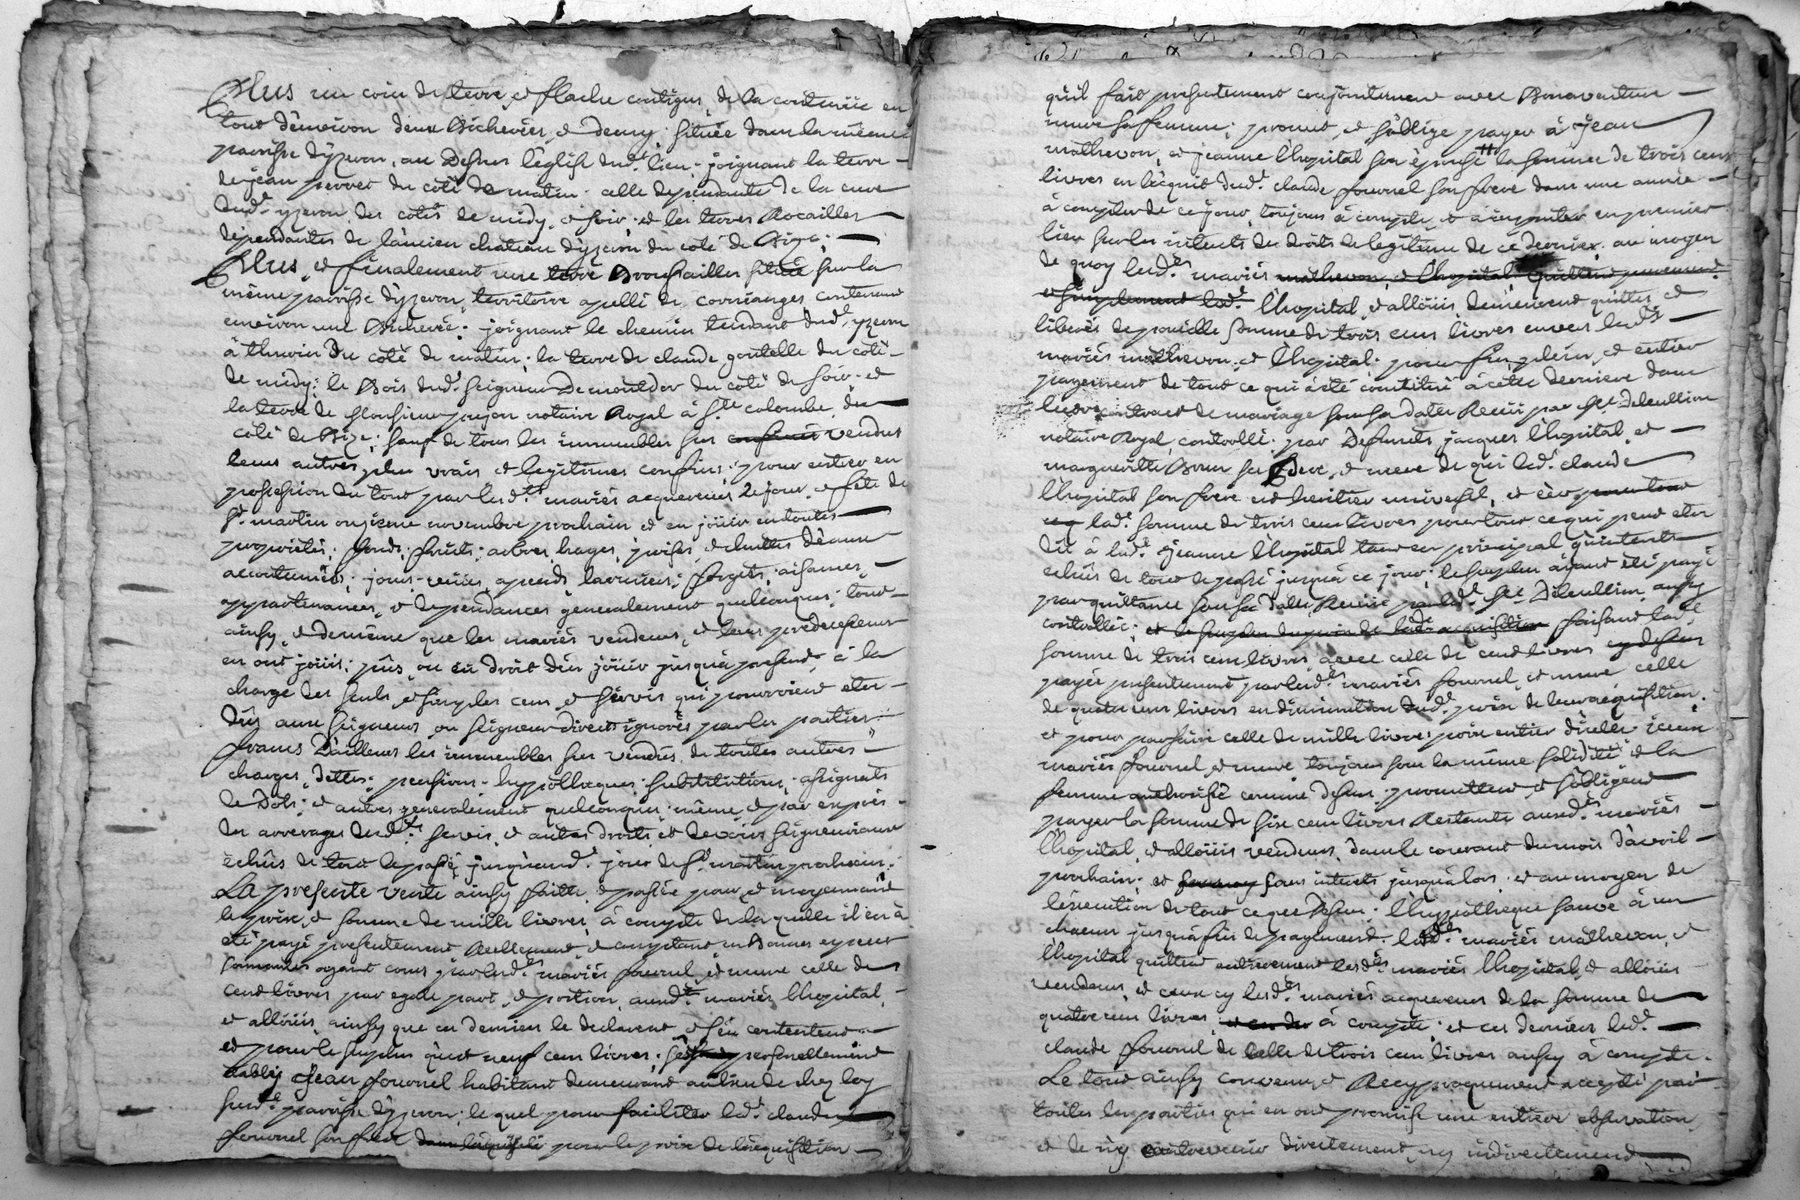 Plus un coin de terre et flache contigus, de la contenüe en
tout d'environ deux Bicherées, et demy. située dans la même
parroisse d'yzeron, au Dessus l'église dud.t lieu; joignant la terre
de jean perret du coté de matin. celle dependante de la cure
dud.t yzeron, des cotés de midy, et soir. et les terres Rocailles
dépendantes de l'ancien chateau d'yzeron du coté de Bize;
Plus, et finalement une terre Broussailles située sur la
même parroisse d'yzeron, territoire apellé de contenant
environ une Bicherée. joignant le chemin tendant dud.t yzeron
à thurin du coté de matin; la terre de claude goutelle du coté
de midy; le Bois dud.t seigneur du coté de soir. et
la terre de Monsieur notaire Royal à S.te colombe, du
coté de Bize; sauf de tous les immeubles sus confinés vendus
leurs autres plus vrais et legitimes confins; pour entrer en
possession du tout par lesd.ts mariés acquereurs le jour, et fête de
S.t martin onzieme novembre prochain et en jöuir en toutes
proprietés; fonds; fruits; arbres, hayes, prises, et chuttes d'eaux
accoutumées; jours, veües, apends larmiers; forgets; aisances,
appartenances, et dependances generalement quelconques; tout
ainsy, et de même que les mariés vendeurs, et leurs predecesseurs
en ont jöuis; pûs ou eû droit d'en jöuir jusqu'a present, à la
charge des seuls, et simples cens, et servis qui pourroient etre
dûs aux seigneurs, ou seigneur directs ignorés par les parties;
francs d'ailleurs les immeubles sus vendus de toutes autres
charges, dettes; pensions; hypothéques; substitutions; assignats
de Dots; et autres generalement quelconques; même, et par exprés
des arrerages desd.ts servis, et autres droits, et devoirs seigneuriaux
echûs de tout le passé jusqu'aud.t jour de S.t martin prochain;
La presente vente ainsy faitte, et passée pour, et moyennant
le prix, et somme de mille livres, à compte de laquelle il en à
eté payé presentement Reellement, et comptant en Bonnes especes
sonnantes ayant cours par lesd.ts mariés fournel, et celle de
cent livres par egale part, et portion, auxd.ts mariés l'hopital,
et allöuis, ainsy que ces derniers le declarent, et s'en contentent
et pour le surplus qu'est neuf cent livres; personellement
etably Jean fournel habitant demeurant au lieu de chez loy
susd.te parroisse d'yzeron; lequel pour faciliter led.t claude
fournel son frere dans l'acquisi pour le prix de l'acquisition
qu'il fait presentement conjointement avec Bonaventure
sa femme; promet, et s'oblige payer à Jean
mathevon, et jeanne l'hopital son epouse la somme de trois cent
livres en l'acquit dud.t claude fournel son frere dans une année
à compter de ce jour, toujours à compte, et à imputer en premier
lieu sur les interets des droits de legitime de ce dernier. au moyen
de quoy lesd.ts mariés mathevon, et l'hopital, quittent purement
et simplement lesd.ts l'hopital, et allöuis demeurent quittes, et
liberés de pareille somme de trois cent livres envers lesd.ts
mariés mathevon, et l'hopital; pour fin, plein, et entier
payement de tout ce qui a été constitué à cette derniere dans
leur contract de mariage sous sa datte Recüe par S.r
notaire Royal, controllé, par Defunts jacques l'hopital, et
margueritte ses pere, et mere de qui led.t claude
l'hopital son frere est heritier universel, et ce
lad.te somme de trois cent livres pour tout ce qui peut etre
dû à lad.te jeanne l'hopital tant en principal qu'interets
echus de tout le passé jusqu'a ce jour; le surplus ayant été payé
par quittance sous sa datte Recüe par led.t S.r aussy
controllée; et le surplus du prix de lad.te acquisition faisant lad.te
somme de trois cent livres, avec celle de cent livres cy dessus
payée presentement par lesd.ts mariés fournel, et celle
de quatre cent livres en diminution dud.t prix de leur acquisition;
et pour parfaire celle de mille livres prix entier d'icelle. iceux
mariés fournel, et toujours sous la même solidité, et la
femme authorisée comme dessus; promettent, et s'obligent
payer la somme de six cent livres Restante auxd.ts mariés
l'hopital, et allöuis vendeurs, dans le courant du mois d'avril
prochain; et sans interets jusqu'alors. et au moyen de
l'execution de tout ce que dessus. l'hypotheque sauve à un
chacun jusqu'a fin de payement. lesd.ts mariés mathevon, et
l'hopital quittent entierement lesd.ts mariés l'hopital, et allöuis
vendeurs, et ceux cy lesd.ts mariés acquereurs de la somme de
quatre cent livres, à compte; et ces derniers led.t
claude fournel de celle de trois cent livres aussy à compte.
Le tout ainsy convenu, et Recyproquement accepté par
toutes les parties qui en ont promis une entiere observation
et de n'y contrevenir directement, ny indirectement